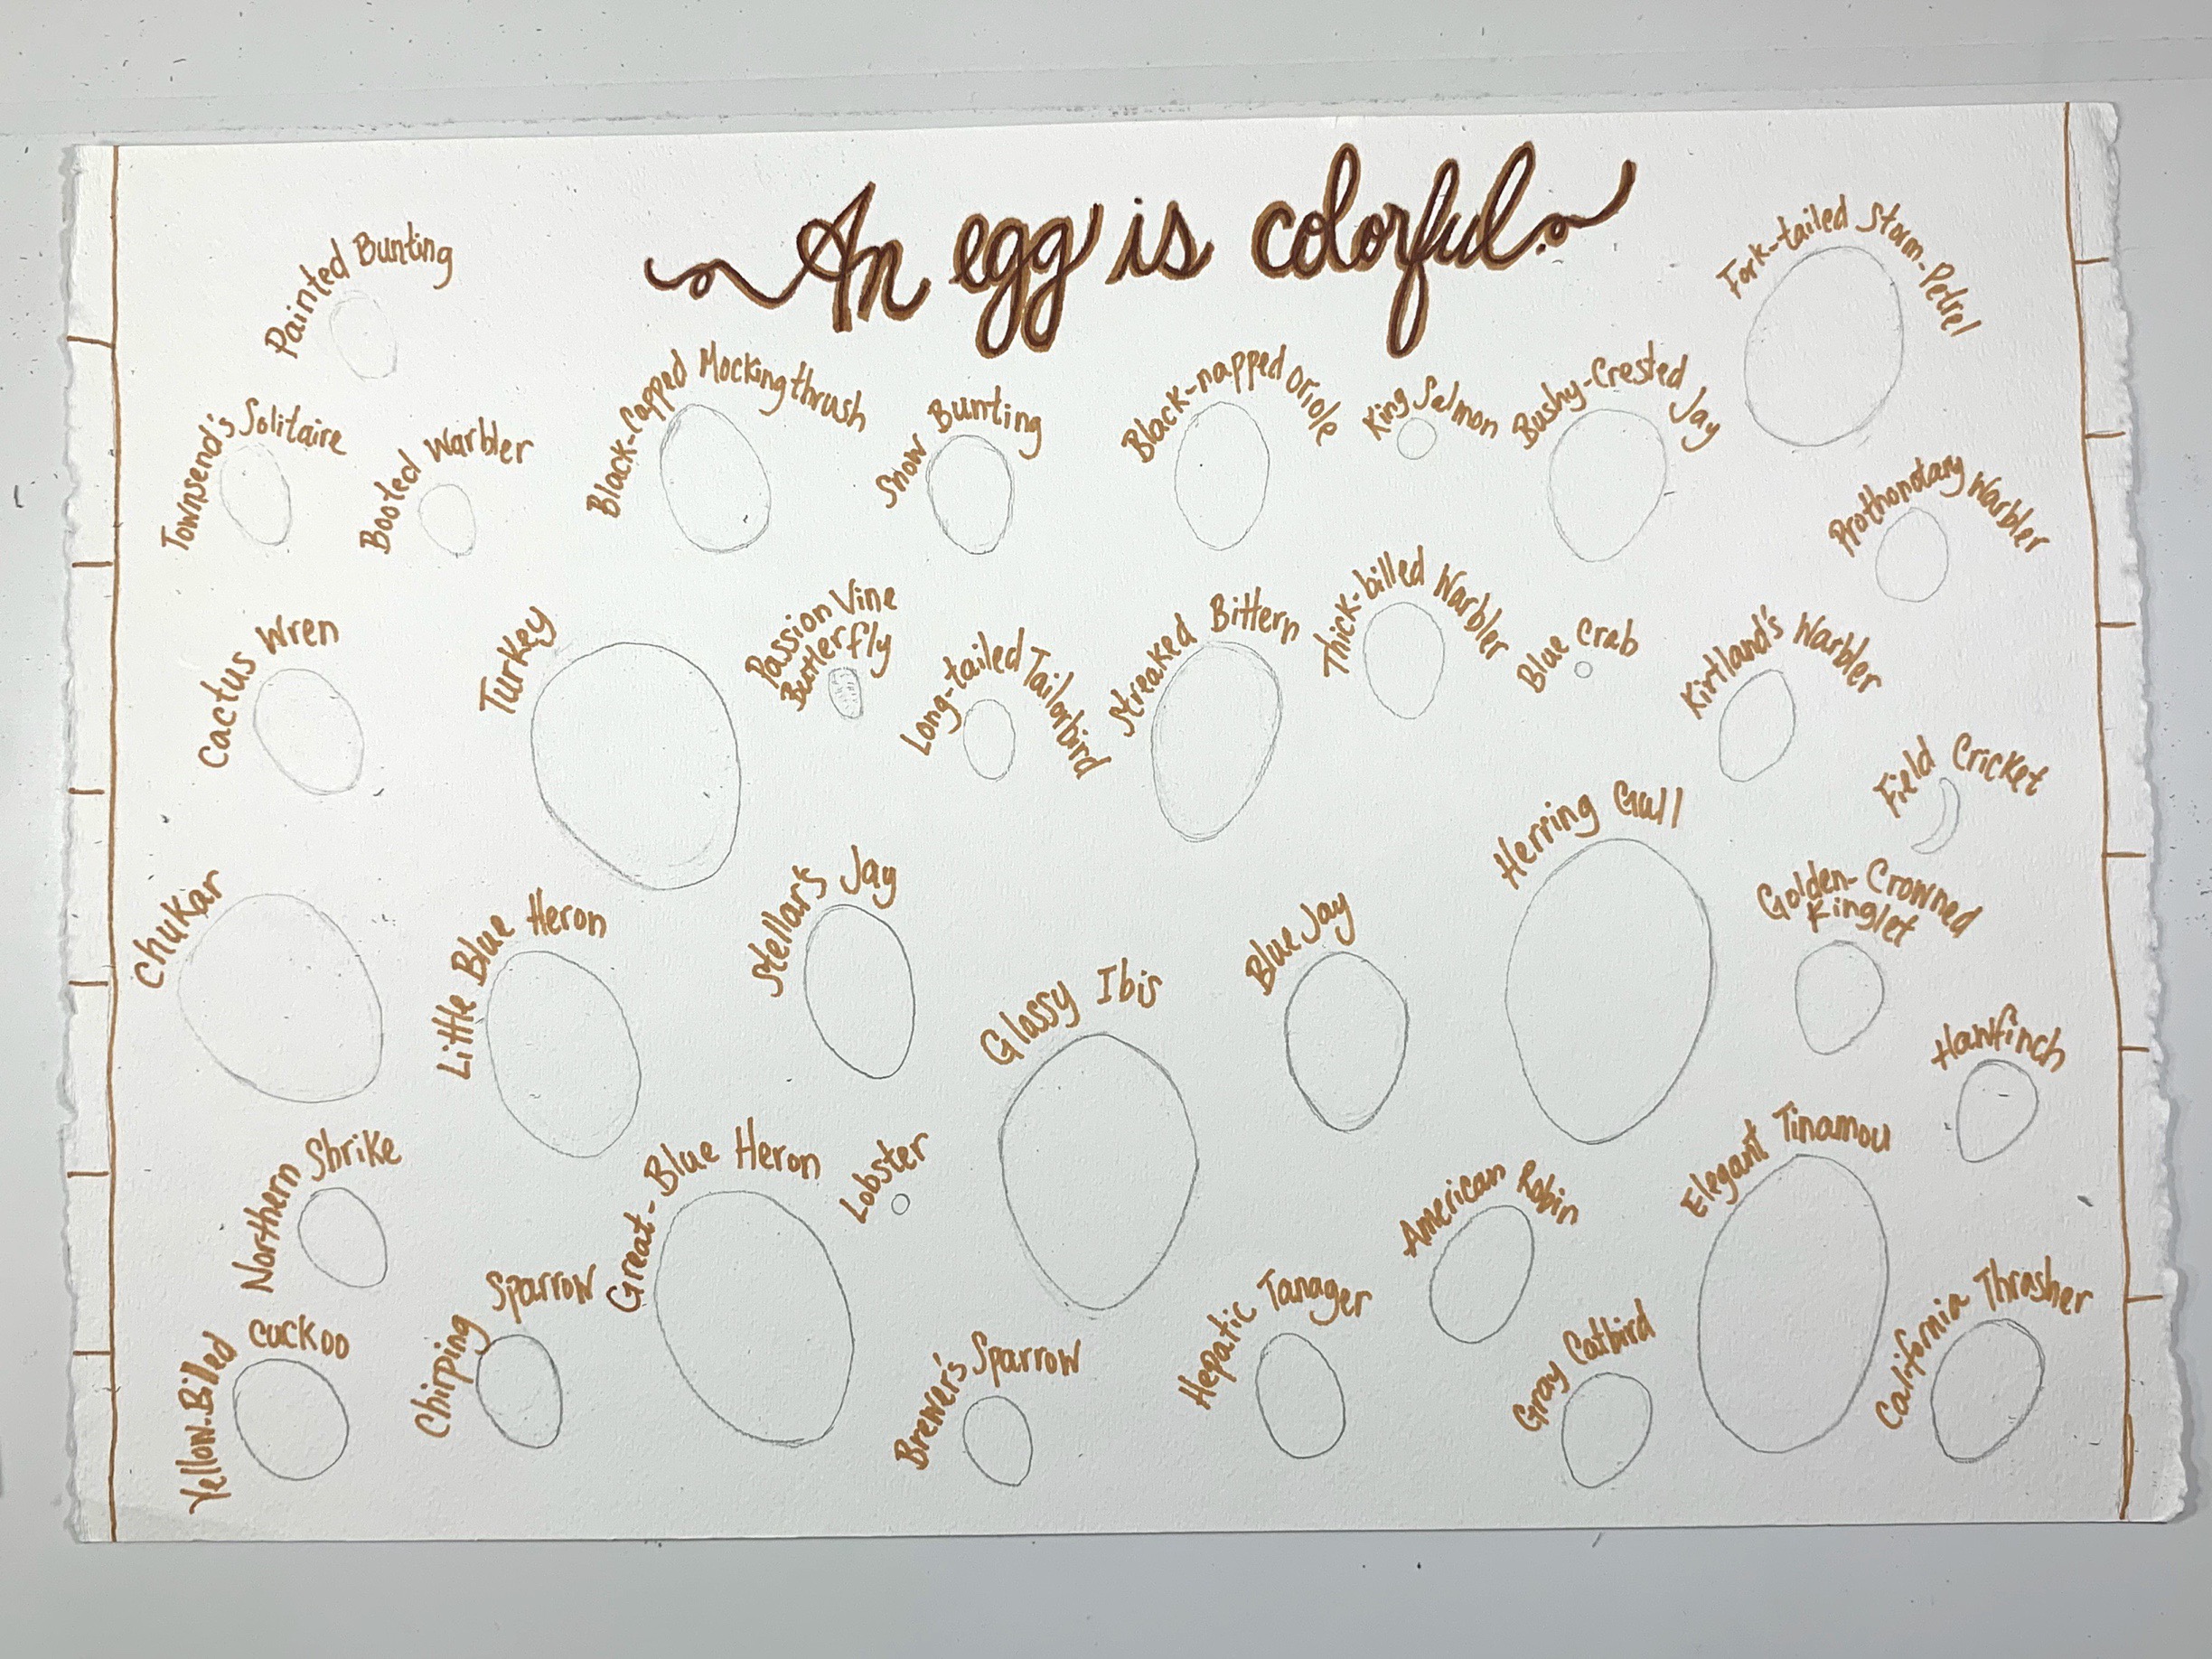 An egg is colorful.
Painted Bunting
Fork-tailed Storm-Petrel
Townsend's Solitaire
Booted Warbler
Black-Capped Mockingthrush
Snow Bunting
Black-napped Oriole
King Salmon
Bushy-Crested Jay
Prothonotary Warbler
Cactus Wren
Turkey
Passion Vine
Butterfly
Long-tailed Tailorbird
Streaked Bittern
Thick-billed Warbler
Blue Crab
Kirtland's Warbler
Field Cricket
Chukar
Little Blue Heron
Stellar's Jay
Glossy Ibis
Blue Jay
Herring Gull
Golden-Crowned
Kinglet
Hawfinch
Northern Shrike
Great-Blue Heron
Lobster
American Robin
Elegant Tinamou
Yellow-Billed Cuckoo
Chirping Sparrow
Brewer's Sparrow
Hepatic Tanager
Gray Catbird
California Thrasher